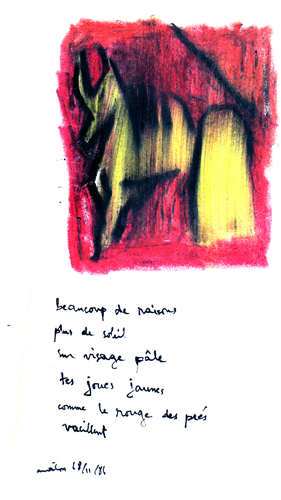 beaucoup de raisons
plus de soleil
sur visage pâle
tes joues jaunes
comme le rouge des prés
vacillent